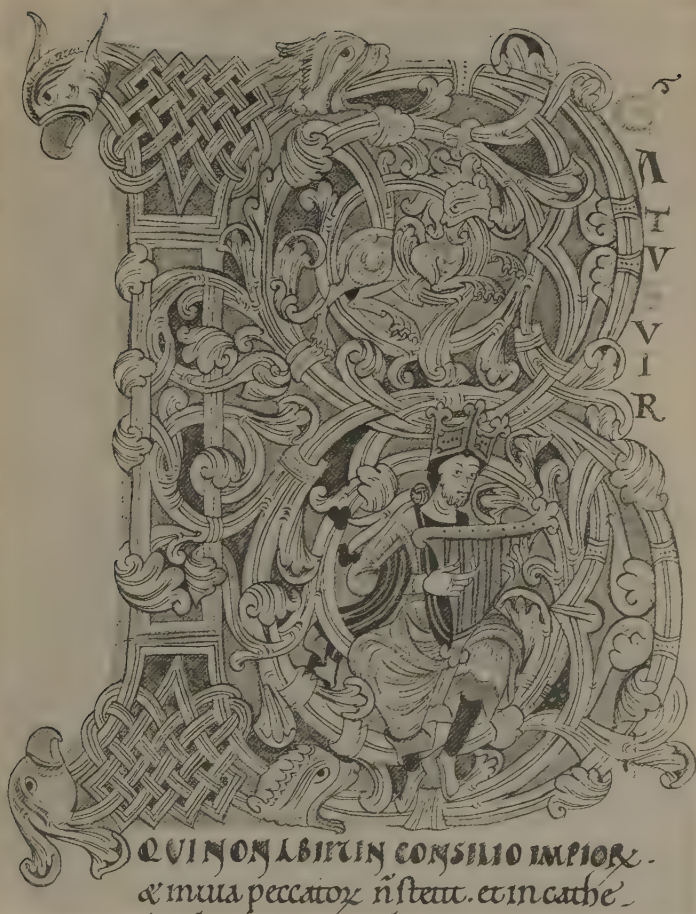 B
A
T
V
V
I
R
QVI NON ABIIT IN CONSILIO IMPIOꝝ.
& in uia peccatoꝝ n̄ stetit. et in cathe-